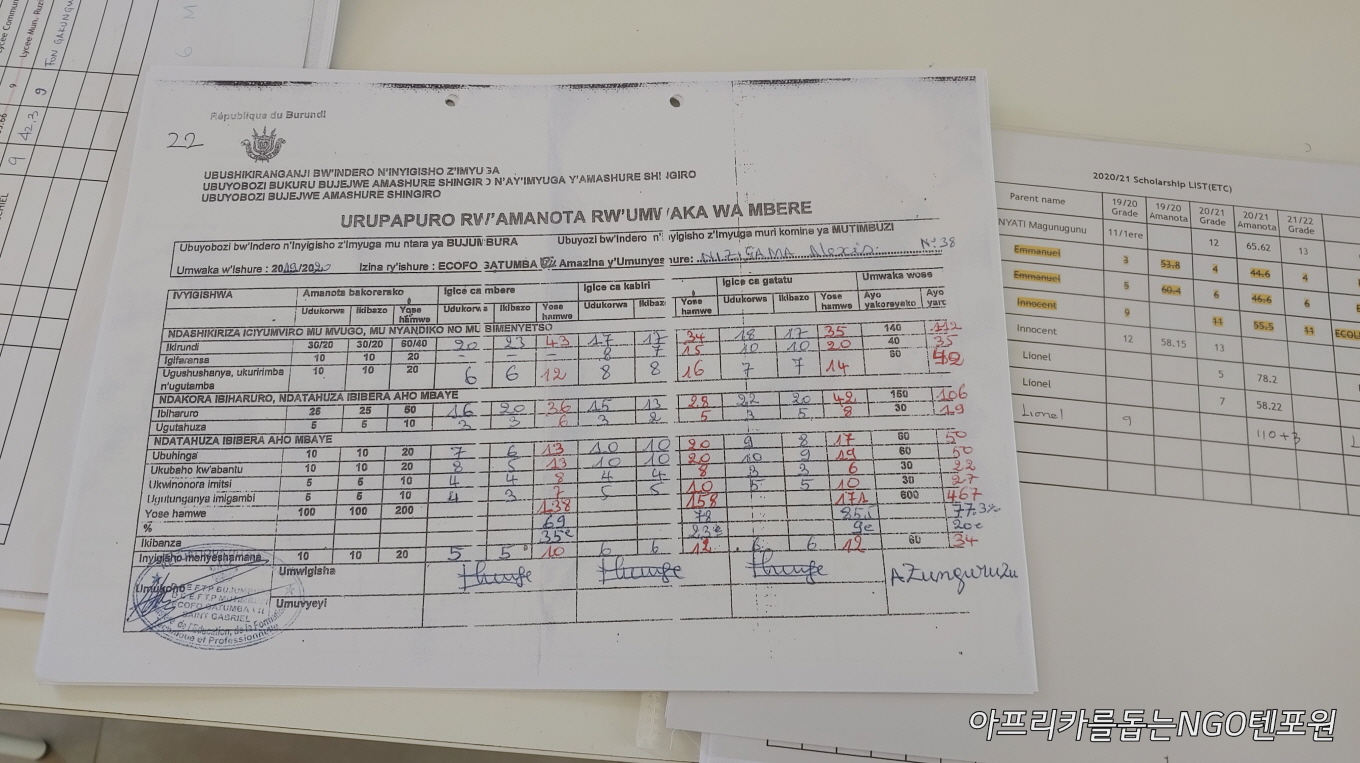 Lycee Commun
Lycee Mun. Ruz
9
9 42,3 9
République du Burundi
22
UBUSHIKIRANGANJI BW'INDERO N'INYIGISHO Z'IMYUGA
UBUYOBOZI BUKURU BUJEJWE AMASHURE SHINGIRO N'AY'IMYUGA Y'AMASHURE SHINGIRO
UBUYOBOZI BUJEJWE AMASHURE SHINGIRO
URUPAPURO RW'AMANOTA RW'UMWAKA WA MBERE
Ubuyobozi bw'Indero n'Inyigisho z'Imyuga mu ntara ya BUJUMBURA Ubuyozi bw'Indero n'Inyigisho z'Imyuga muri komine ya MUTIMBUZI
Umwaka w'ishure : 2019/2020 Izina ry'ishure : ECOFO GATUMBA VII Amazina y'Umunyeshure: NIZIGAMA Alexis N° 38
IVYIGISHWA Amanota bakorerako Igice ca mbere Igice ca kabiri Igice ca gatatu Umwaka wose
Udukorwa Ikibazo Yose hamwe Udukorwa Ikibazo Yose hamwe Udukorwa Ikibazo Yose hamwe Udukorwa Ikibazo Yose hamwe Ayo yakoreyeko Ayo
NDASHIKIRIZA ICIYUMVIRO MU MVUGO, MU NYANDIKO NO MU BIMENYETSO
Ikirundi 30/20 30/20 60/40 20 23 43 17 17 34 18 17 35 140 112
Igifaransa 10 10 20 - - - 8 7 15 10 10 20 40 35
Ugushushanya, ukuririmba n'ugutamba 10 10 20 6 6 12 8 8 16 7 7 14 60 42
NDAKORA IBIHARURO, NDATAHUZA IBIBERA AHO MBAYE
Ibiharuro 25 25 50 16 20 36 15 13 28 22 20 42 150 106
Ugutahuza 5 5 10 3 3 6 3 2 5 3 5 8 30 19
NDATAHUZA IBIBERA AHO MBAYE
Ubuhinga 10 10 20 7 6 13 10 10 20 9 8 17 60 50
Ukubaho kw'abantu 10 10 20 8 5 13 10 10 20 10 9 19 60
Ukwinonora imitsi 5 5 10 4 4 8 4 4 8 3 3 6 30 22
Ugutunganya imigambi 5 5 10 4 3 7 5 5 10 5 5 10 30 27
Yose hamwe 100 100 200 138 158 171 600 467
% 69 78 77.3%
Ikibanza 35e 23e 9e 20e
Inyigisho menyeshamana 10 10 20 5 5 10 6 6 12 6 6 12 60 34
Umukono Umwigisha AZunguruzu
Umuvyeyi
ECOFO GATUMBA VII
SAINT GABRIEL
2020/21 Scholarship LIST(ETC)
Parent name 19/20 Grade 19/20 Amanota 20/21 Grade 20/21 Amanota 21/22 Grade
NYATI Magunugunu 11/1ere 12 65.62 13
Emmanuel 3 53.8 4 44.6 4
Emmanuel 5 60.4 6 46.6 6
Innocent 9 11 55.5 11 ECOL
Innocent 12 58.15 13
Lionel 5 78.2
Lionel 7 58.22
Lionel 9 110+3
아프리카를돕는NGO텐포원